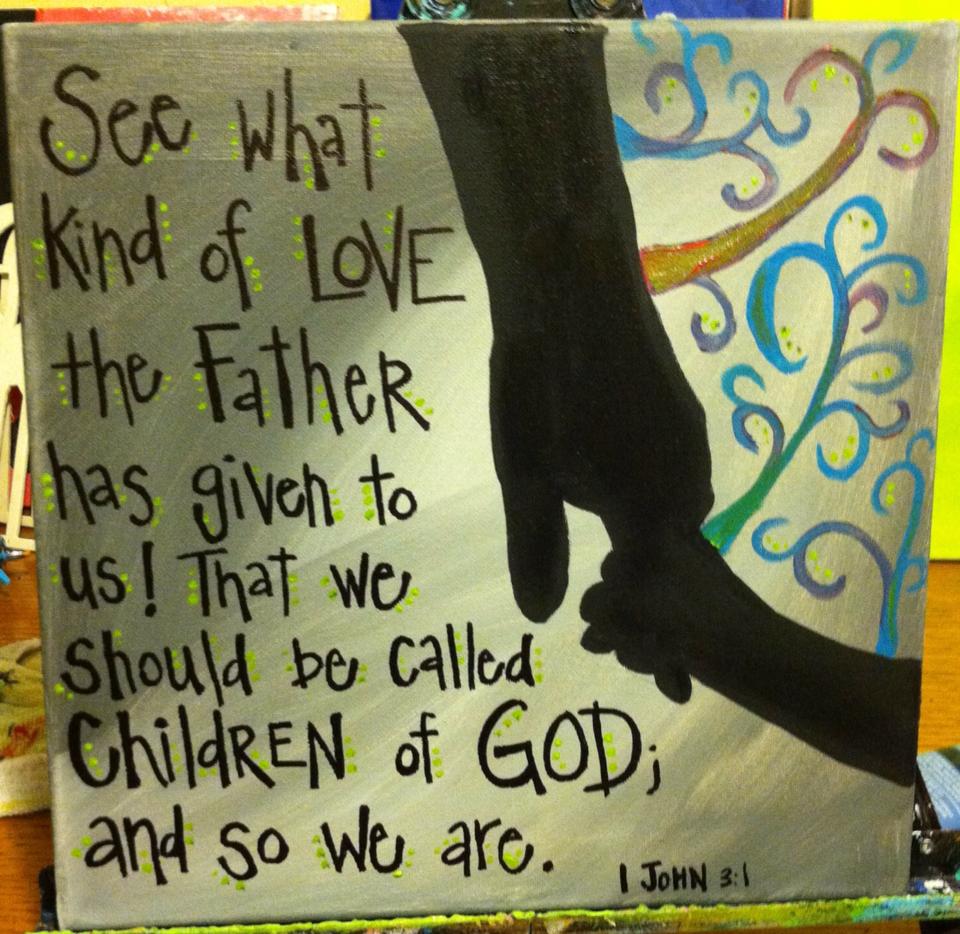 See what
kind of LOVE
the FatheR
has given to
us! That we
should be called
ChildREN of GOD;
and so we are.
1 JOHN 3:1